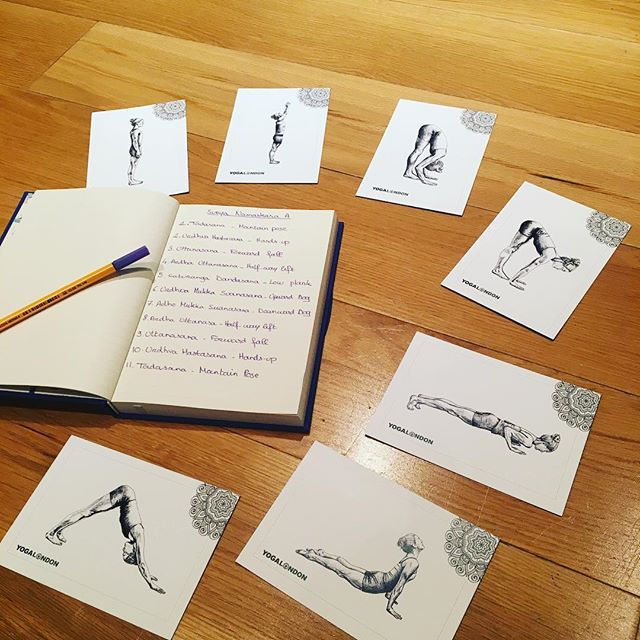 YOGALONDON
YOGALONDON
YOGALONDON
Surya Namaskara A
1. Tadasana - Mantain pose
2. Urdhva Hastasana - Hands up
3. Uttanasana - Forward fall
4. Ardha Uttanasana - Half-way lift
5. Caturanga Dandasana - Low plank
6. Urdhva Mukka Svanasana - Upward Dog
7. Adho Mukka Svanasana - Downward Dog
8. Ardha Uttanasa - Half-way lift
9. Uttanasana - Forward fall
10. Urdhva Hastasana - Hands-up
11. Tadasana - Mantain Pose
YOGALONDON
YOGALONDON
YOGALONDON